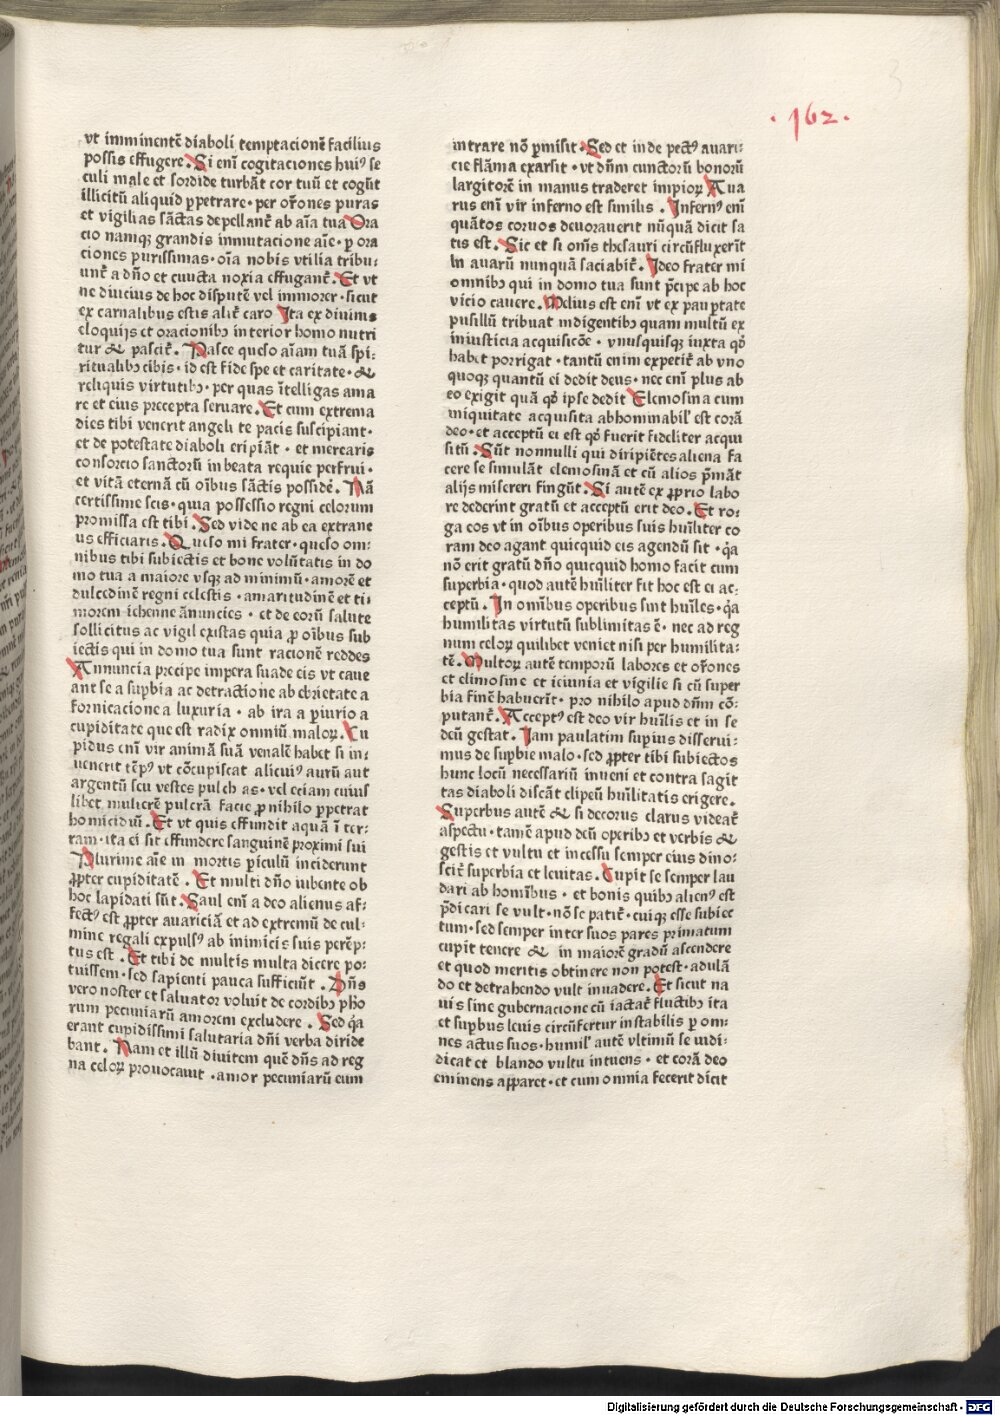 .162.
vt imminentē diaboli temptacionē facilius
possis effugere. Si enī cogitaciones huiꝰ se
culi male et sordide turbāt cor tuū et cogūt
illicitū aliquid ꝑpetrare · per orōnes puras
et vigilias sāctas depellantᷣ ab aīa tua Ora
cio namqꝫ grandis inmutacione aīe · ꝑ ora
ciones purissimas · oīa nobis vtilia tribu-
untᷣ a dño et cuucta noxia effugantᷣ. Et vt
ne diucius de hoc disputē vel immorer · sicut
ex carnalibus estis alitᷣ caro Ita ex diuinis
eloquijs et oracionibꝫ interior homo nutri
tur & pascitᷣ. Pasce queso aīam tuā spi-
ritualibꝫ cibis · id est fide spe et caritate · &
reliquis virtutibꝫ · per quas ītelligas ama
re et eius precepta seruare. Et cum extrema
dies tibi venerit angeli te pacis suscipiant ·
et de potestate diaboli eripiāt · et mercaris
consorcio sanctorū in beata requie perfrui ·
et vitā eternā cū oībus sāctis possidē. Nā
certissime scis · quia possessio regni celorum
promissa est tibi. Sed vide ne ab ea extrane
us efficiaris. Queso mi frater · queso om-
nibus tibi subiectis et bone volūtatis in do
mo tua a maiore vsqꝫ ad minimū · amorē et
dulcedinē regni celestis · amaritudinē et ti-
morem iehenne ānuncies · et de eorū salute
sollicitus ac vigil existas quia ꝓ oībus sub
iectis qui in domo tua sunt racionē reddes
Annuncia precipe impera suade eis vt caue
ant se a suꝑbia ac detractione ab ebrietate a
fornicacione a luxuria · ab ira a ꝑiurio a
cupiditate que est radix omniū maloꝝ. Cu
pidus enī vir animā suā venalē habet si in-
uenerit tēpꝰ vt cōcupiscat alicuiꝰ aurū aut
argentū seu vestes pulch as · vel eciam cuius
libet mulierē pulcrā facie ꝓ nihilo ꝑpetrat
homicidiū. Et vt quis effundit aquā ī ter-
ram · ita ei sit effundere sanguinē proximi sui
Plurime aīe in mortis ꝑiculū inciderunt
ꝓpter cupiditatē. Et multi dño iubente ob
hoc lapidati sūt. Saul enī a deo alienus af-
fectꝰ est ꝓpter auariciā et ad extremū de cul-
mine regali expulsꝰ ab inimicis suis perēp-
tus est. Et tibi de multis multa dicere po-
tuissem · sed sapienti pauca sufficiūt. Dñs
vero noster et saluator voluit de cordibꝫ pho
rum pecuniarū amorem excludere. Sed q̄a
erant cupidissimi salutaria dñi verba diride
bant. Nam et illū diuitem quē dñs ad reg
na celoꝝ prouocauit · amor pecuniarū eum
intrare nō ꝑmisit. Sed et inde pectꝰ auari-
cie flāma exarsit · vt dñm cunctorū bonorū
largitorē in manus traderet impioꝝ Aua
rus enī vir inferno est similis. Infernꝰ enī
quātos coruos deuorauerit nūquā dicit sa
tis est. Sic et si onīs thesauri circūfluxerīt
in auarū nunquā saciabitᷣ. Ideo frater mi
omnibꝫ qui in domo tua sunt p̄cipe ab hoc
vicio cauere. Melius est enī vt ex pauꝑtate
pusillū tribuat indigentibꝫ quam multū ex
iniusticia acquisicōe · vnusquisqꝫ iuxta qḋ
habet porrigat · tantū enim expetitᷣ ab vno
quoqꝫ quantū ei dedit deus · nec enī plus ab
eo exigit quā qḋ ipse dedit Elemosina cum
iniquitate acquisita abhominabilˀ est corā
deo · et acceptū ei est qḋ fuerit fideliter acqui
sitū. Sūt nonnulli qui diripiētes aliena fa
cere se simulāt elemosinā et cū alios p̄māt
alijs misereri fingūt. Si autē ex ꝓprio labo
re dederint gratū et acceptū erit deo. Et ro-
ga eos vt in oībus operibus suis huīliter co
ram deo agant quicquid eis agendū sit · q̄a
nō erit gratū dño quicquid homo facit cum
superbia · quod autē huīliter fit hoc est ei ac-
ceptū. In omībus operibus sint huīles · q̄a
humilitas virtutū sublimitas ē · nec ad reg
num celoꝝ quilibet veniet nisi per humilita-
tē. Multoꝝ autē temporū labores et orōnes
et elimosine et ieiunia et vigilie si cū super
bia finē habuerīt · pro nihilo apud dñm cō-
putantᷣ. Acceptꝰ est deo vir huīlis et in se
deū gestat. Iam paulatim supius disserui-
mus de supbie malo · sed ꝓpter tibi subiectos
hunc locū necessariū inueni et contra sagit
tas diaboli discāt clipeū huīlitatis erigere.
Superbus autē & si decorus clarus videatᷣ
aspectu · tamē apud deū operibꝫ et verbis &
gestis et vultu et incessu semper eius dino-
scitᷣ superbia et leuitas. Cupit se semper lau
dari ab homībus · et bonis quibꝫ alienꝰ est
p̄dicari se vult · nō se patitᷣ · cuiqꝫ esse subiec
tum · sed semper inter suos pares primatum
cupit tenere & in maiorē gradū ascendere
et quod meritis obtinere non potest · adulā
do et detrahendo vult inuadere. Et sicut na
uis sine gubernacione cū iactatᷣ fluctibꝫ ita
et suꝑbus leuis circūfertur instabilis ꝑ om-
nes actus suos · humilˀ autē vltimū se iudi-
dicat et blando vultu intuens · et corā deo
eminens apparet · et cum omnia fecerit dicit
Digitalisierung gefördert durch die Deutsche Forschungsgemeinschaft - DFG